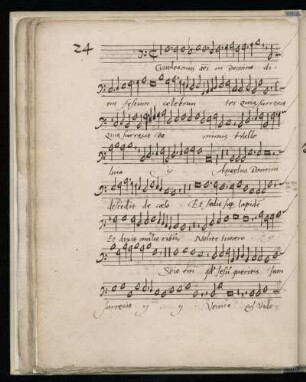 24
Gaudeamus oēs in Domino di-
em festum celebran tes qua surrexit
Qua surrexit Do minus Allelu
luia ij Angelus Domini
descēdit de cælo Et sedit sup lapidē
Et dixit mulieribus Nolite timere
Scio em qd Jesū queritis Iam
surrexit ij ij Venite et vide